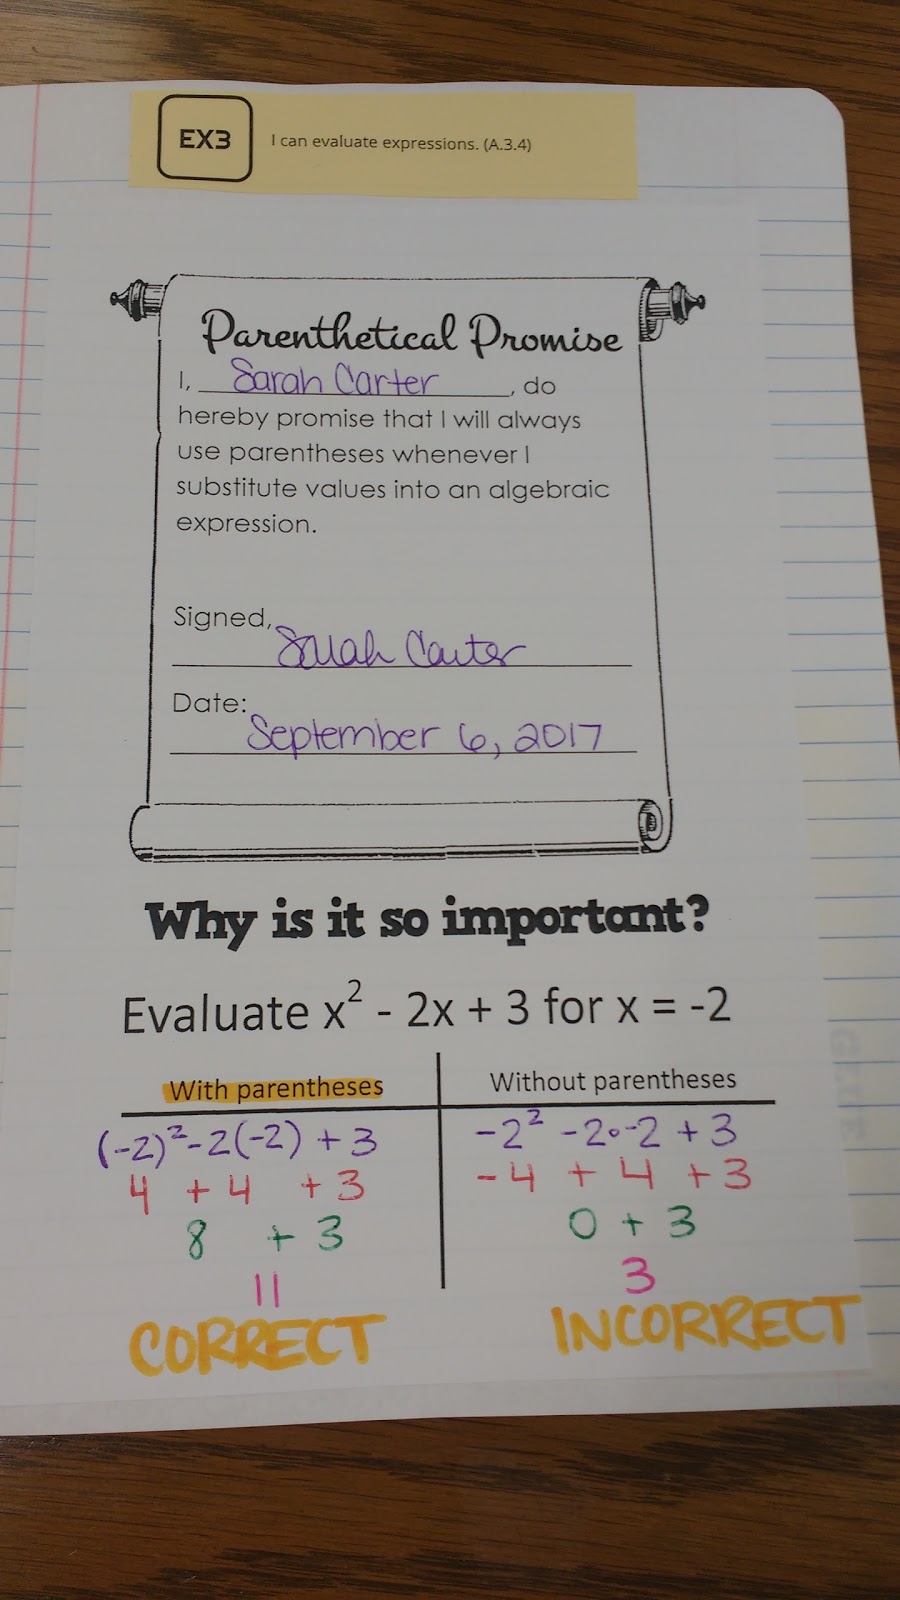 EX3 I can evaluate expressions. (A.3.4)
Parenthetical Promise
I, Sarah Carter, do
hereby promise that I will always
use parentheses whenever I
substitute values into an algebraic
expression.
Signed,
Sarah Carter
Date:
September 6, 2017
Why is it so important?
Evaluate x² - 2x + 3 for x = -2
With parentheses
(-2)²-2(-2) + 3
4 + 4 + 3
8 + 3
11
CORRECT
Without parentheses
-2² -2•-2 + 3
-4 + 4 + 3
0 + 3
3
INCORRECT